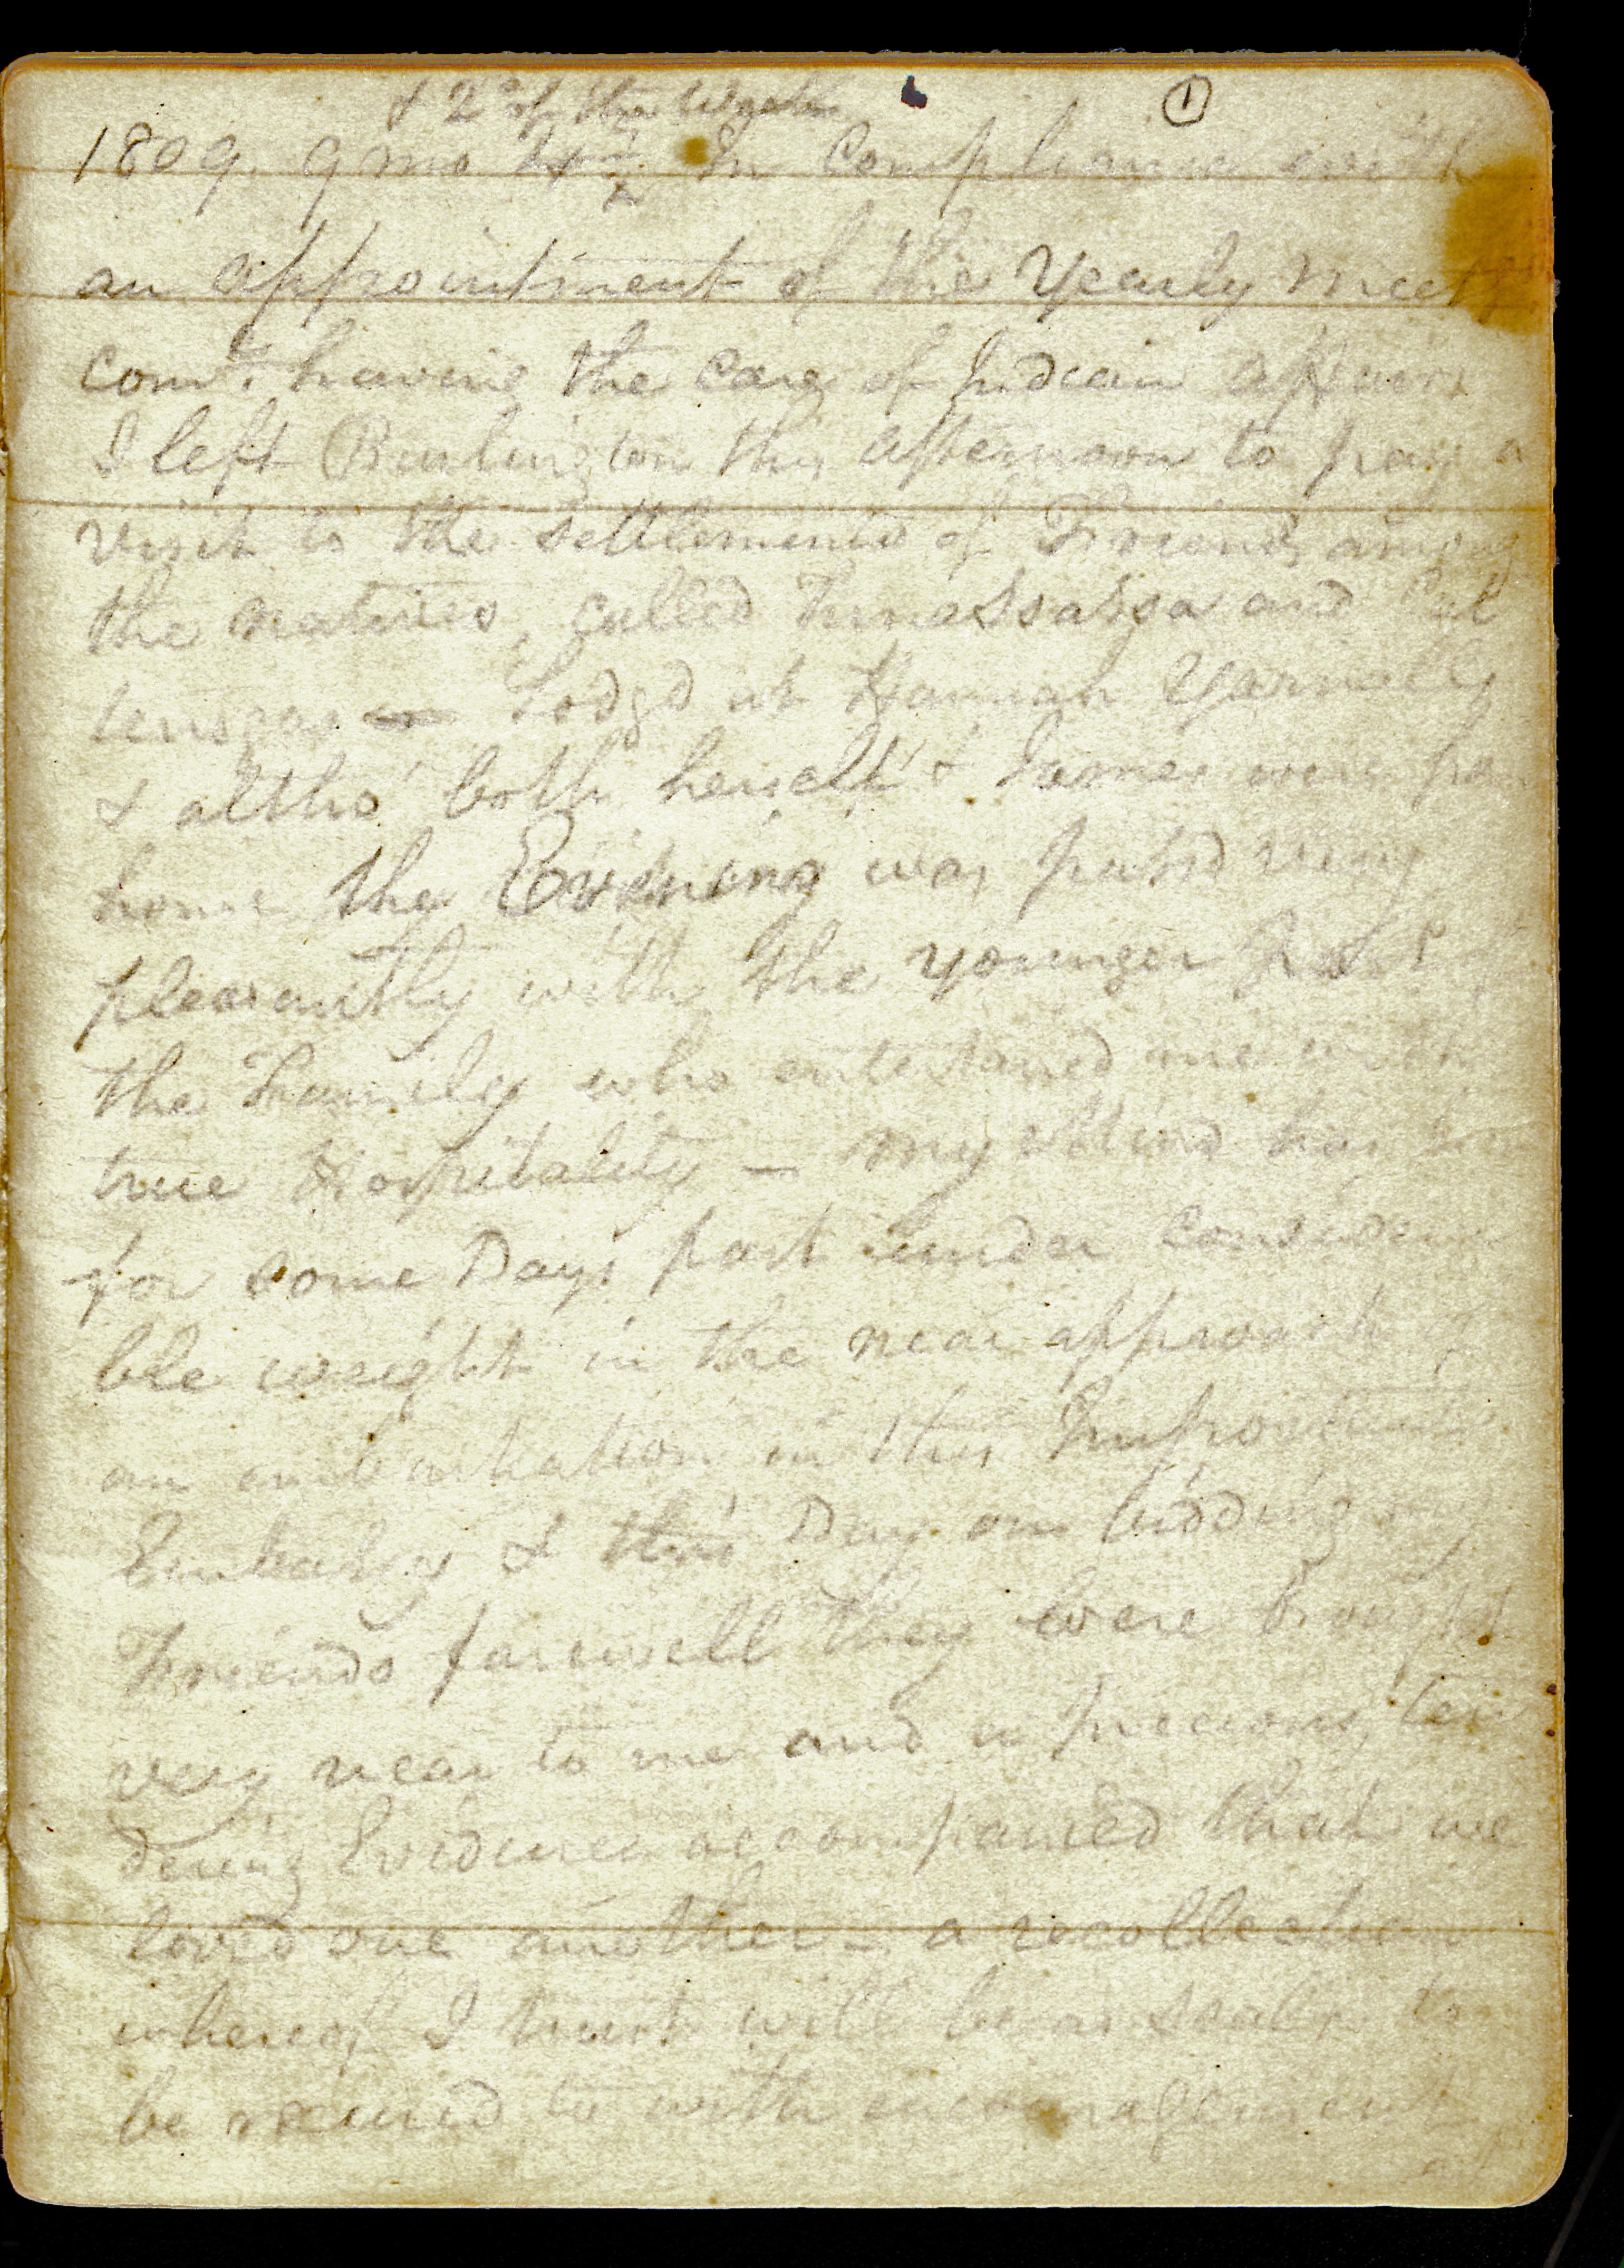 & 2d of the Week
1
1809. 9 mo 4th In Compliance with
an appointment of the Yearly Meetgs
comt. having the care of Indian Affairs
I left Burlington this afternoon to pay a
visit to the settlements of Friends among
the natives, called Tunessassa and Cat
teraugas Lodg'd at Hannah Yarnalls
& altho' both herself & James were fro
home the Evening was pass'd very
pleasantly with the younger part of
the Family who entertained me with
true Hospitality - my Mind has been
for some Days past under considera
ble weight in the near approach of
an embarkation in this Important
Embassy & this Day on bidding my
Friends farewell they were brought
very near to me and a precious ten
dering Evidence accompanied that we
loved one another - a recollection
whereof I trust will be a to
be recurred to with encouragement
at